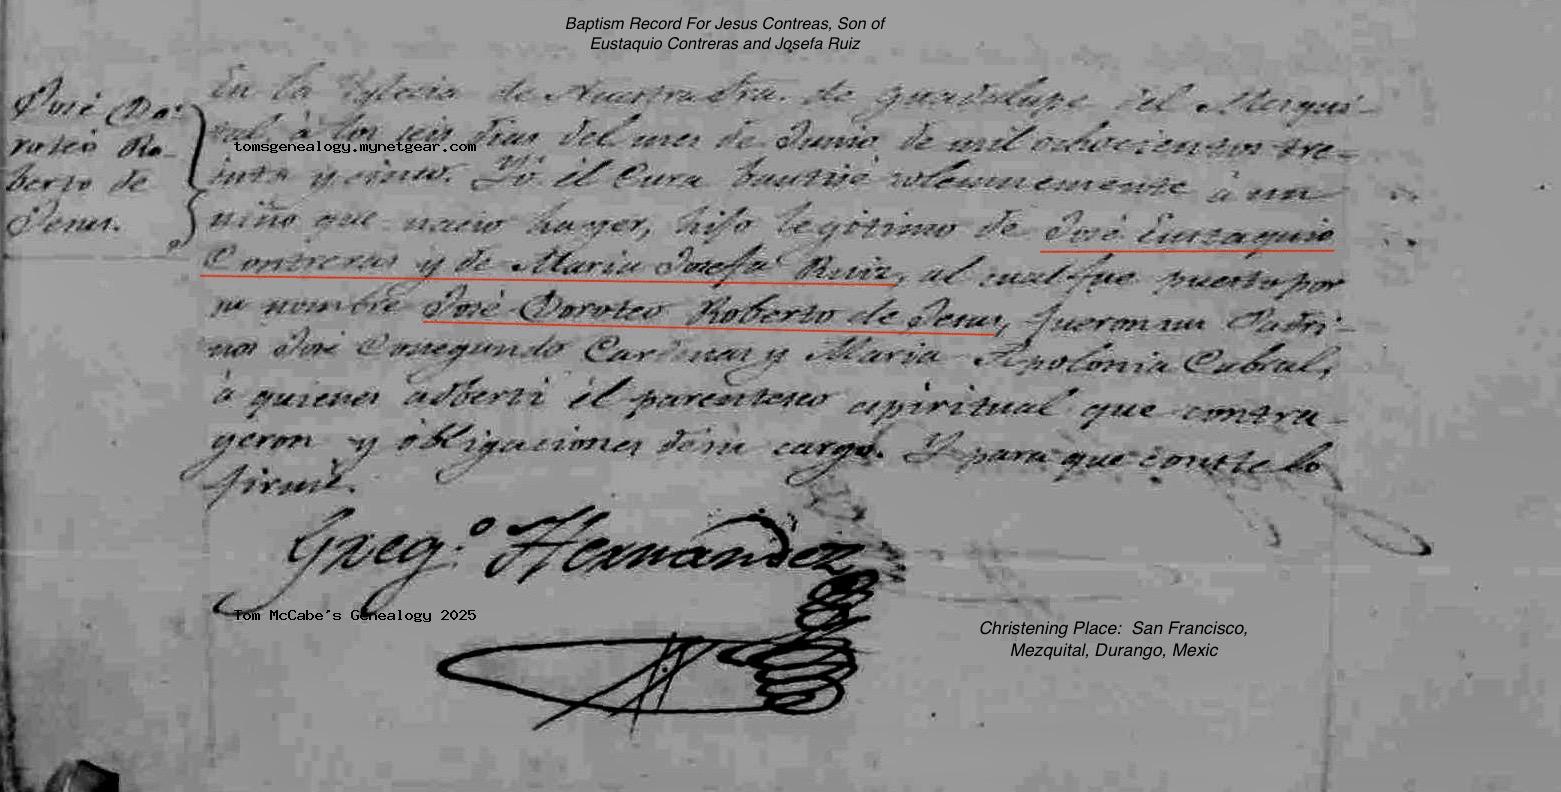 Baptism Record For Jesus Contreas, Son of
Eustaquio Contreras and Josefa Ruiz
José Do-
roteo Ro-
berto de
Jesus.
En la Yglesia de Nuestra Sra. de Guadalupe del Mezqui-
tal, à los seis dias del mes de Junio de mil ochocientos tre-
inta y cinco. Yó el Cura bautisé solemnemente à un
niño que nacio hayer, hijo legitimo de José Eustaquio
Contreras y de Maria Josefa Ruiz, al cual fue puesto por
su nombre José Doroteo Roberto de Jesus, fueron sus Padri-
nos José Cardenas y Maria Apolonia Cabral,
à quienes adberti el parentesco espiritual que contra-
geron y obligaciones de su cargo. Y para que conste lo
firmé.
Greg.o Hernandez
tomsgenealogy.mynetgear.com
Tom McCabe's Genealogy 2025
Christening Place: San Francisco,
Mezquital, Durango, Mexic